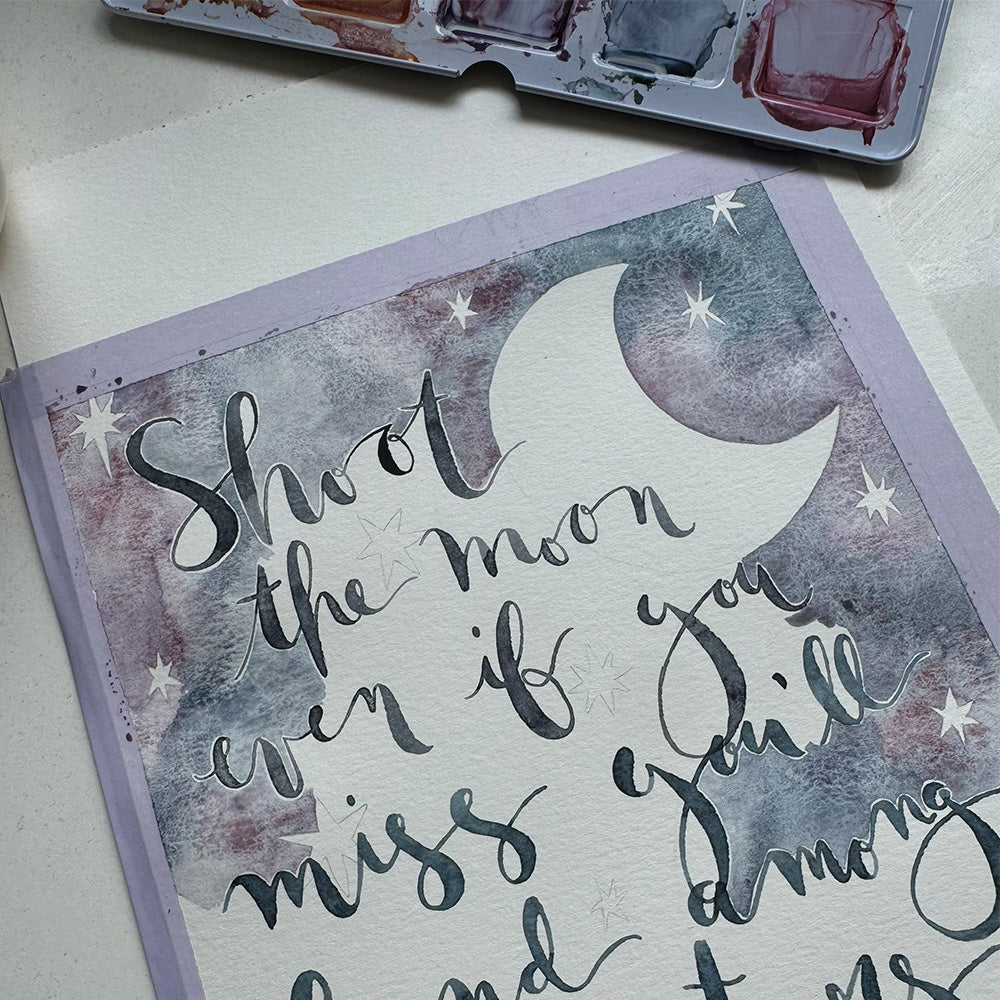 Shoot
the moon
even if you
miss you'll
land among